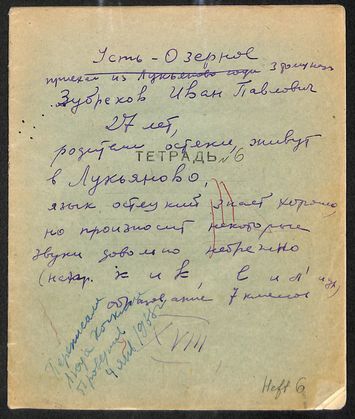 Усть-Озерное
приехал из Лукьяново года 3
Зубрехов Иван Павлович
27 лет,
родители остяки, живут
ТЕТРАДЬ 6
в Лукьяново,
язык остяцкий знает хорошо,
но произносит некоторые
звуки довольно небрежно
(напр. к и қ, l и л' и др.)
образование 7 классов
Переписал
Проверил
1958
XVIII
Heft 6